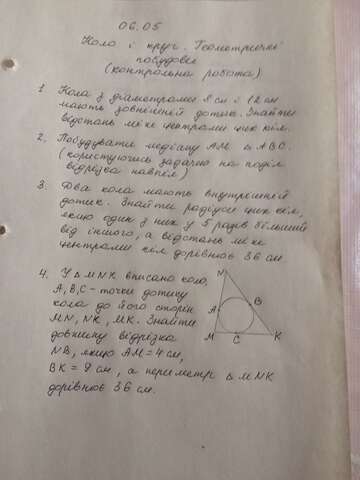 06.05
Коло і круг. Геометричні
побудови
(контрольна робота)
1. Кола з діаметрами 8 см і 12 см
мають зовнішній дотик. Знайти
відстань між центрами цих кіл.
2. Побудувати медіану АМ △ АВС.
(користуючись задачею на поділ
відрізка навпіл)
3. Два кола мають внутрішній
дотик. Знайти радіуси цих кіл,
якщо один з них у 5 разів більший
від іншого, а відстань між
центрами кіл дорівнює 36 см.
4. У △ MNK вписано коло,
А, В, С - точки дотику
кола до його сторін
MN, NK, MK. Знайти
довжину відрізка
NB, якщо AM = 4 см,
BK = 9 см, а периметр △ MNK
дорівнює 36 см.
N
B
A
M
C
K